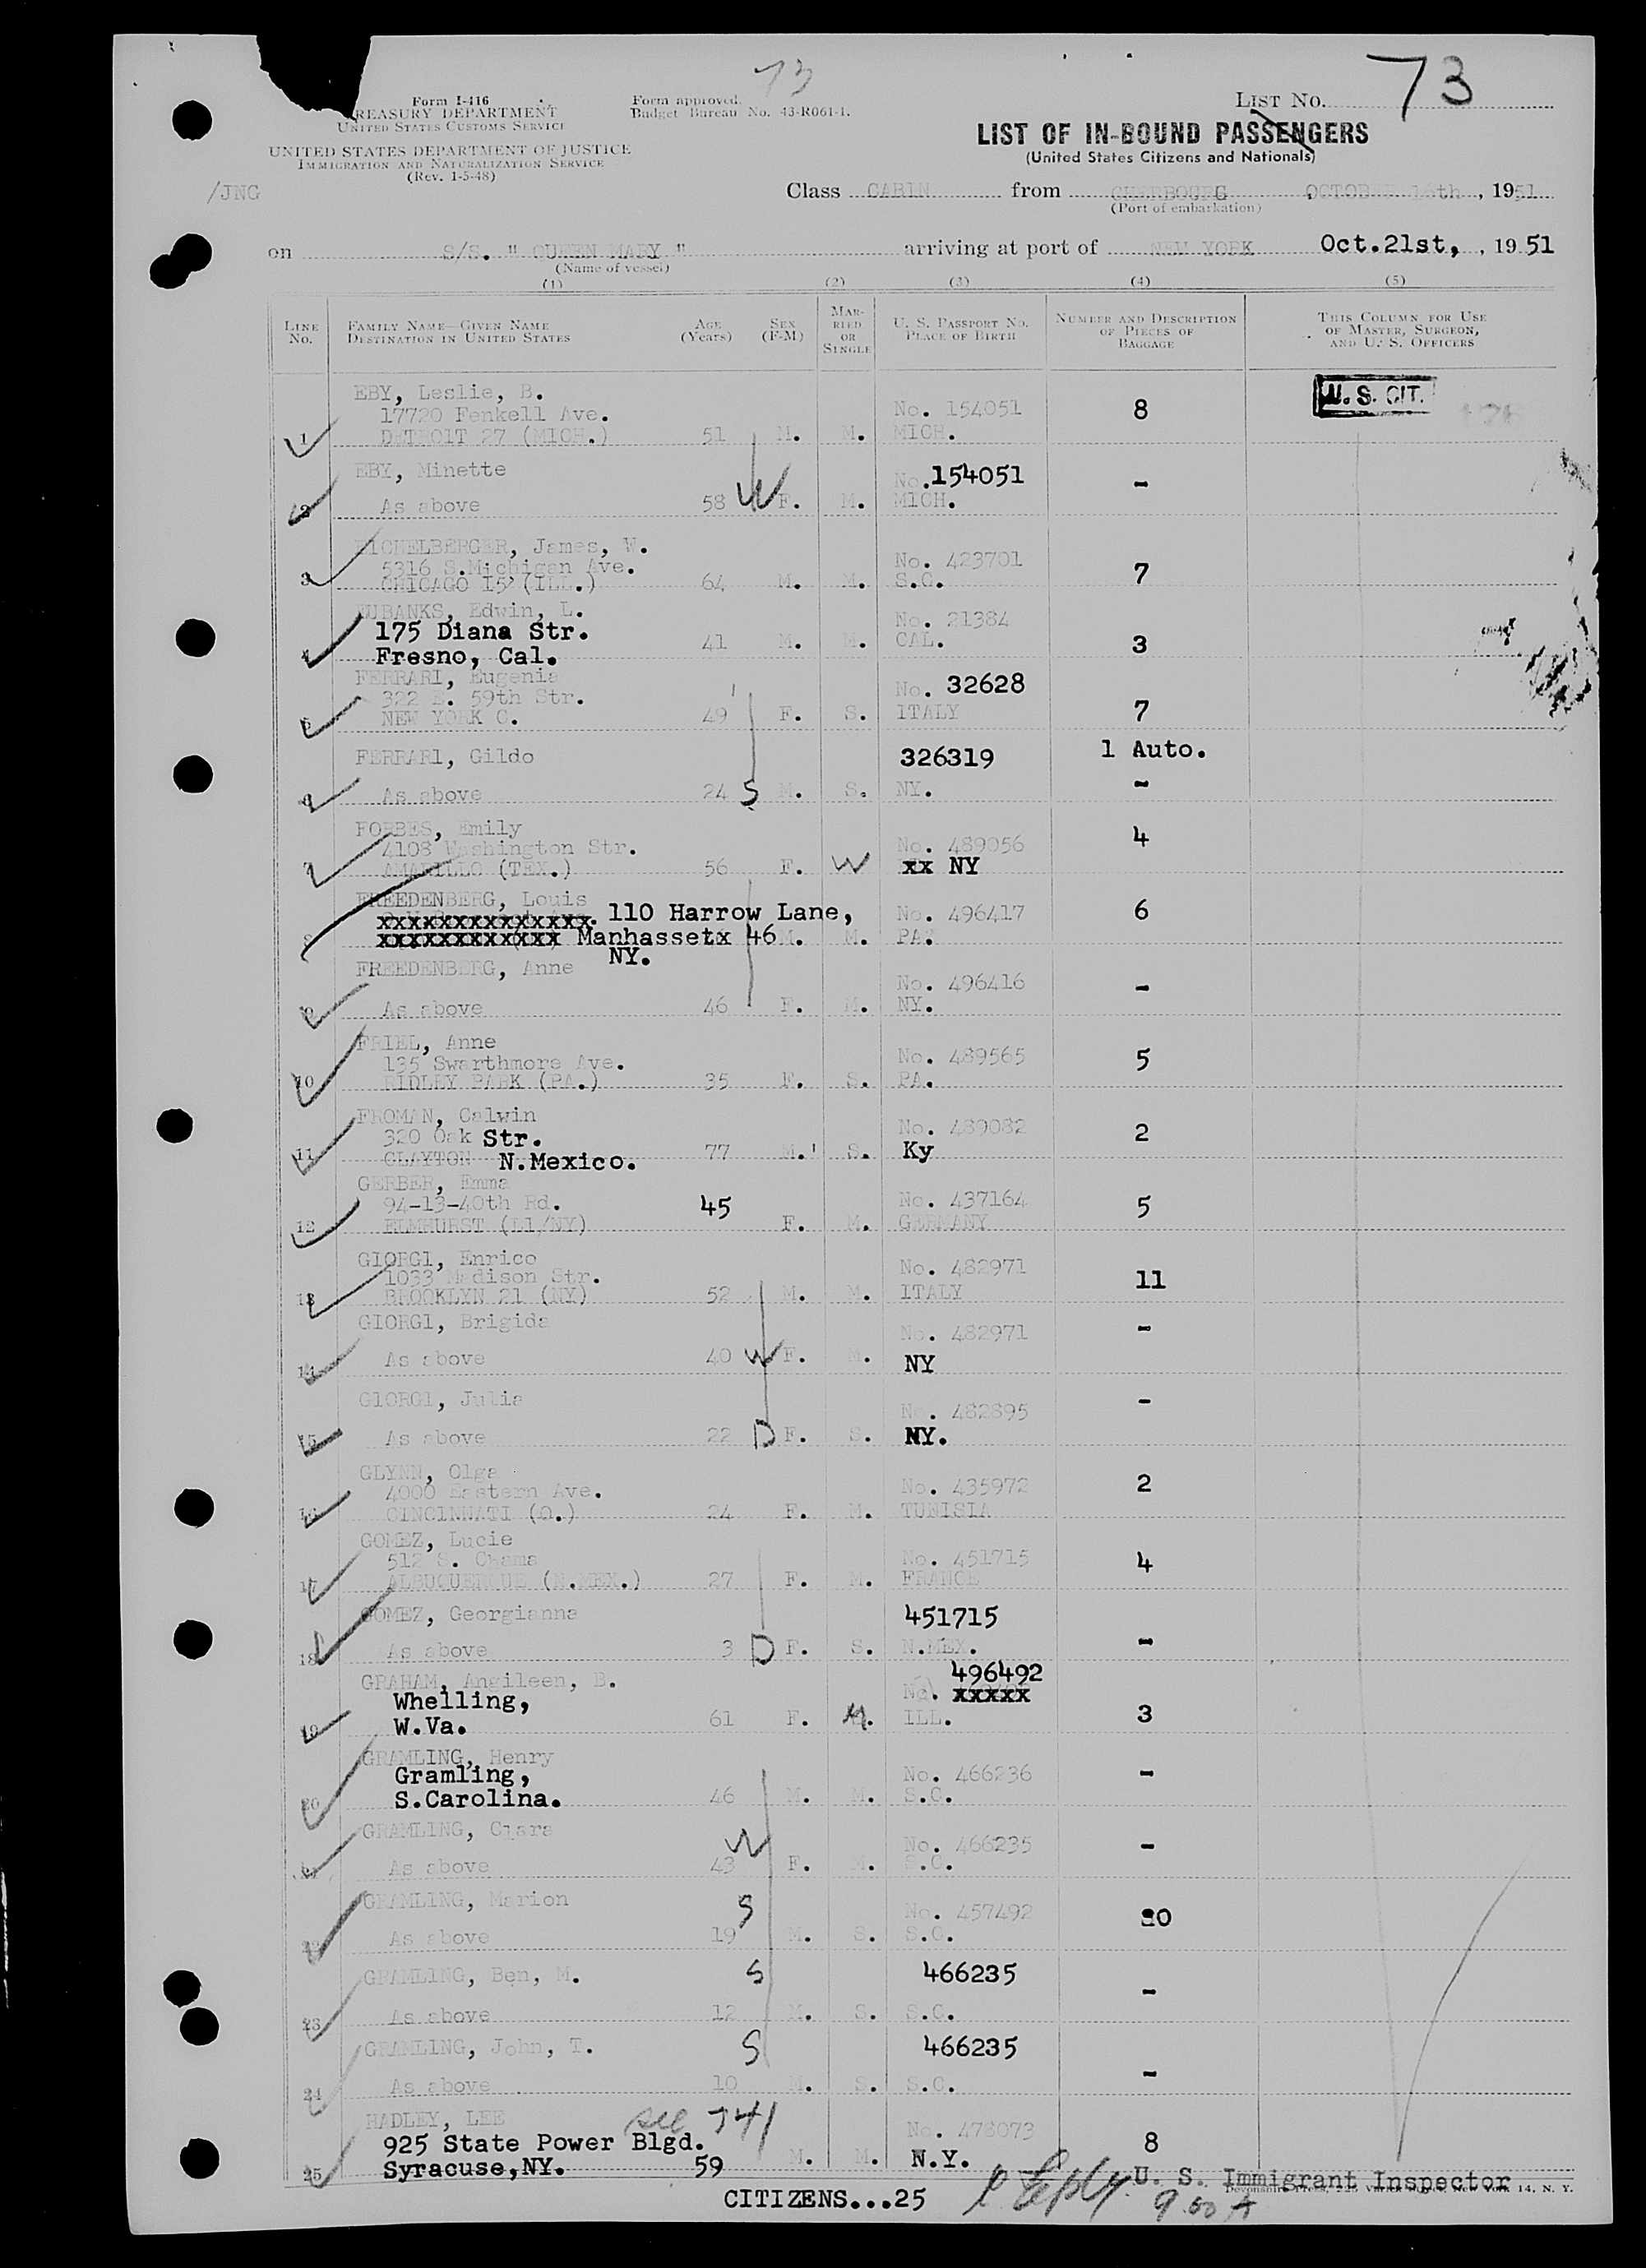 73
73
Form I-416
TREASURY DEPARTMENT
UNITED STATES CUSTOMS SERVICE
Form approved.
Budget Bureau No. 43-R061-1.
LIST No.
LIST OF IN-BOUND PASSENGERS
(United States Citizens and Nationals)
UNITED STATES DEPARTMENT OF JUSTICE
IMMIGRATION AND NATURALIZATION SERVICE
(Rev. 1-5-48)
/JNG
Class CABIN from CHERBOURG OCTOBER 16th, 1951
(Port of embarkation)
on S/S. " QUEEN MARY " arriving at port of NEW YORK Oct.21st, , 1951
(Name of vessel)
(1) (2) (3) (4) (5)
LINE No. FAMILY NAME—GIVEN NAME DESTINATION IN UNITED STATES AGE (Years) SEX (F-M) MARRIED OR SINGLE U. S. PASSPORT No. PLACE OF BIRTH NUMBER AND DESCRIPTION OF PIECES OF BAGGAGE THIS COLUMN FOR USE OF MASTER, SURGEON, AND U. S. OFFICERS
EBY, Leslie, B.
17720 Fenkell Ave. No. 154051 8 U. S. CIT.
1 DETROIT 27 (MICH.) 51 M. M. MICH.
EBY, Minette No.154051 -
2 As above 58 W F. M. MICH.
EICHELBERGER, James, W.
5316 S.Michigan Ave. No. 423701 7
3 CHICAGO 15 (ILL.) 64 M. M. S.C.
EUBANKS, Edwin, L. No. 21384
175 Diana Str. 41 M. M. CAL. 3
4 Fresno, Cal.
FERRARI, Eugenia No. 32628
322 E. 59th Str.
5 NEW YORK C. 49 F. S. ITALY 7
FERRARI, Gildo 326319 1 Auto.
6 As above 24 S M. S. NY. -
FORBES, Emily 4
4108 Washington Str. No. 489056
7 AMARILLO (TEX.) 56 F. W xx NY
FREEDENBERG, Louis
xxxxxxxxxxxxxxx. 110 Harrow Lane, No. 496417 6
8 xxxxxxxxxxxx Manhassetx 46 M. M. PA.
NY.
FREEDENBERG, Anne No. 496416 -
9 As above 46 F. M. NY.
FRIEL, Anne
135 Swarthmore Ave. No. 489565 5
10 RIDLEY PARK (PA.) 35 F. S. PA.
FROMAN, Calwin
320 Oak Str. No. 489082 2
11 CLAYTON N.Mexico. 77 M. S. Ky
GERBER, Emma
94-13-40th Rd. 45 No. 437164 5
12 ELMHURST (L1/NY) F. M. GERMANY
GIORGI, Enrico
1033 Madison Str. No. 482971 11
13 BROOKLYN 21 (NY) 52 M. M. ITALY
GIORGI, Brigida No. 482971 -
14 As above 40 W F. M. NY
GIORGI, Julia No. 482895 -
15 As above 22 D F. S. NY.
GLYNN, Olga
4000 Eastern Ave. No. 435972 2
16 CINCINNATI (O.) 24 F. M. TUNISIA
GOMEZ, Lucie
512 S. Chama No. 451715 4
17 ALBUQUERQUE (N.MEX.) 27 F. M. FRANCE
GOMEZ, Georgianna 451715
18 As above 3 D F. S. N.MEX. -
GRAHAM, Angileen, B. 496492
Whelling, No. xxxxx
19 W.Va. 61 F. M. ILL. 3
GRAMLING, Henry
Gramling, No. 466236 -
20 S.Carolina. 46 M. M. S.C.
GRAMLING, Clara W No. 466235 -
21 As above 43 F. M. S.C.
GRAMLING, Marion S No. 457492 20
22 As above 19 M. S. S.C.
GRAMLING, Ben, M. S 466235 -
23 As above 12 M. S. S.C.
GRAMLING, John, T. S 466235 -
24 As above 10 M. S. S.C.
HADLEY, LEE 741 No. 478073
925 State Power Blgd. 8
25 Syracuse,NY. 59 M. M. N.Y.
CITIZENS...25 U. S. Immigrant Inspector
14, N. Y.